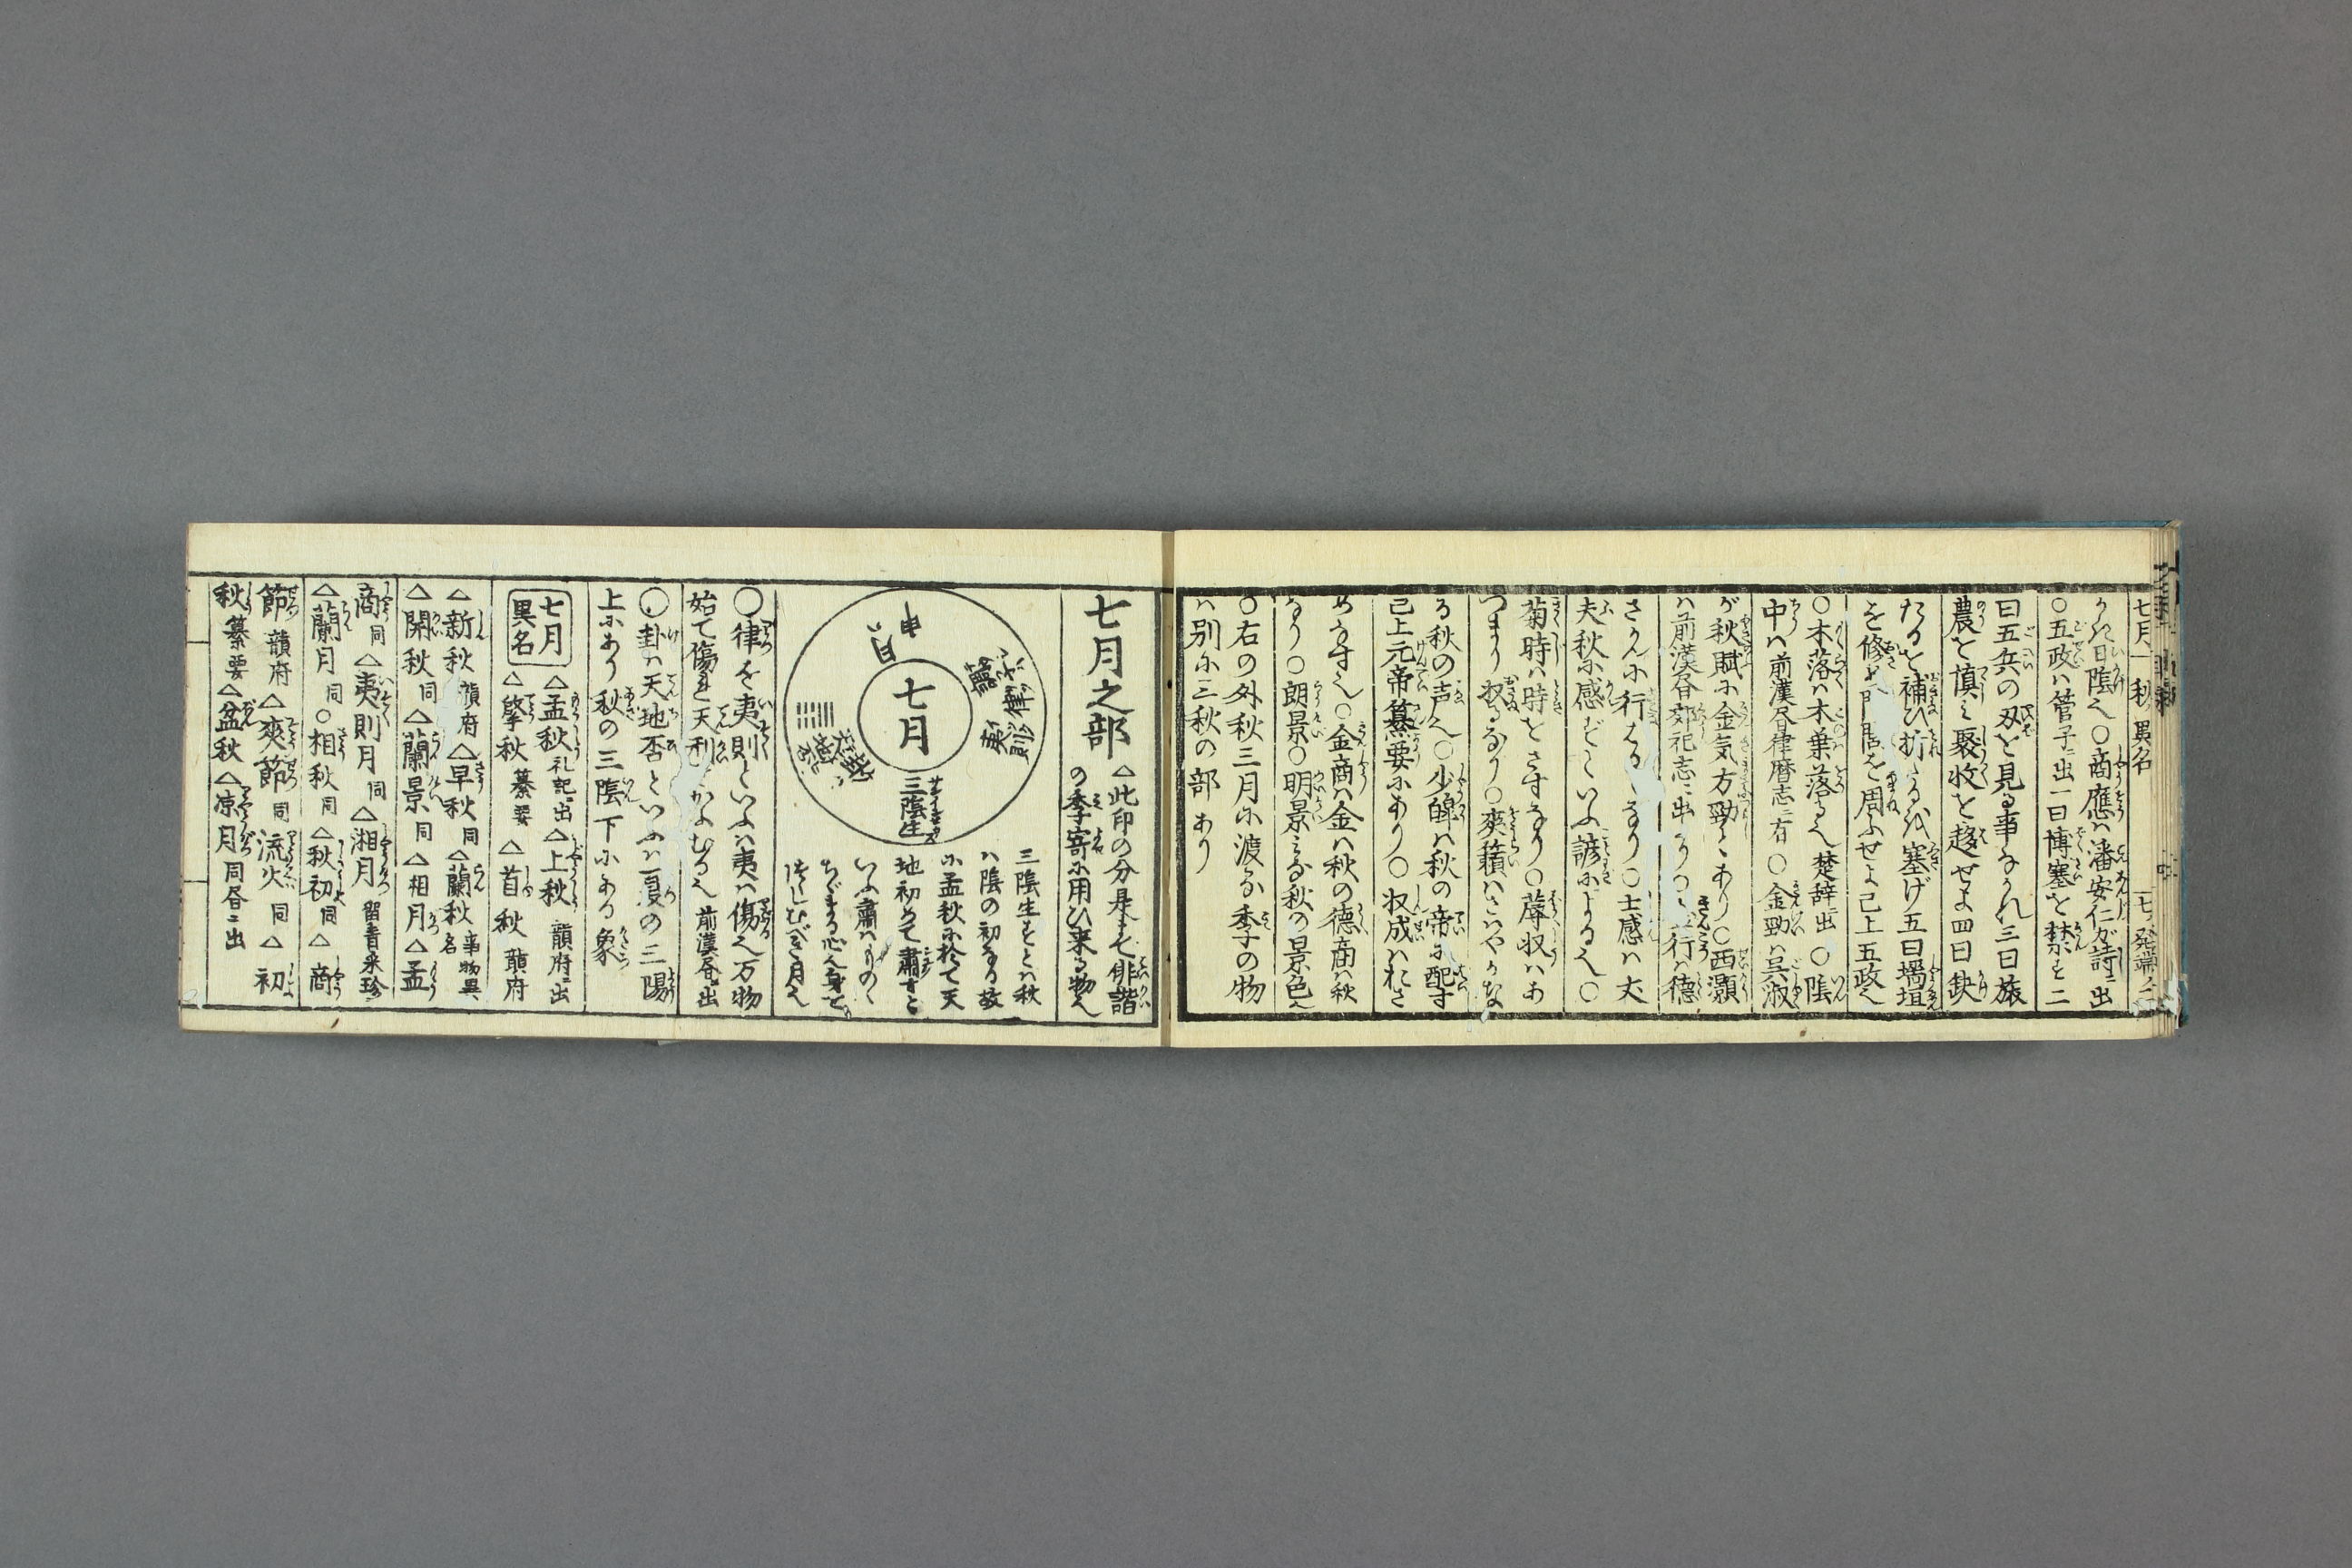 七月 秋 異名
七ノ発端ノ二
かれ曰陰也○商應ハ潘安仁が詩ニ出
○五政ハ管子ニ出一曰博塞を禁を二
曰五兵の刄を見る事なかれ三曰旅
農を慎み聚收を趍せよ四曰缺
たるを補ひ折たるを塞げ五曰墻垣
を修め門閭を周ふせよ已上五政也
○木落ハ木葉落る也楚辞ニ出○陰
中ハ前漢昏律暦志ニ有○金勁ハ吴淑
が秋賦ふ金気方勁とあり○西灝
ハ前漢昏郊祀志ニ出たり○行ハ德
さかんふ行はるゝなり○士感ハ丈
夫秋ふ感ずといふ諺ふよる也○
菊時ハ時をさすなり○蓐収ハあ
つまり収るなり○爽籟ハさハやかな
る秋の声也○少皥ハ秋の帝ふ配す
已上元帝纂要ふあり○収成ハおさ
めなす也○金商ハ金ハ秋の德商ハ秋
なり○朗景○明景みな秋の景色也
○右の外秋三月ふ渡る季の物
ハ別ふ三秋の部あり
七月之部
△此印の分是も俳諧
の季寄ふ用ひ来る物也
申
七月
三陰生
三陰生ずとハ秋
ハ陰の初なり故
ふ孟秋ふ於て天
地初めて肅すと
いふ肅ハものゝ
ちゞまる心也身を
つゝしむべき月也
○律を夷則といふハ夷ハ傷也万物
始て傷れ天刑をかふむる也前漢昏ニ出
○卦ハ天地否といふハ夏の三陽
上ふあり秋の三陰下ふある象
七月異名
△孟秋礼記ニ出△上秋韻府ニ出
△肇秋纂要△首秋韻府
△新秋韻府△早秋同△蘭秋事物異名
△開秋同△蘭景同△相月△孟
商同△夷則月同△湘月留青釆珍
△蘭月同○相秋同△秋初同△商
節韻府△爽節同流火同△初
秋纂要△盆秋△凉月同昏ニ出